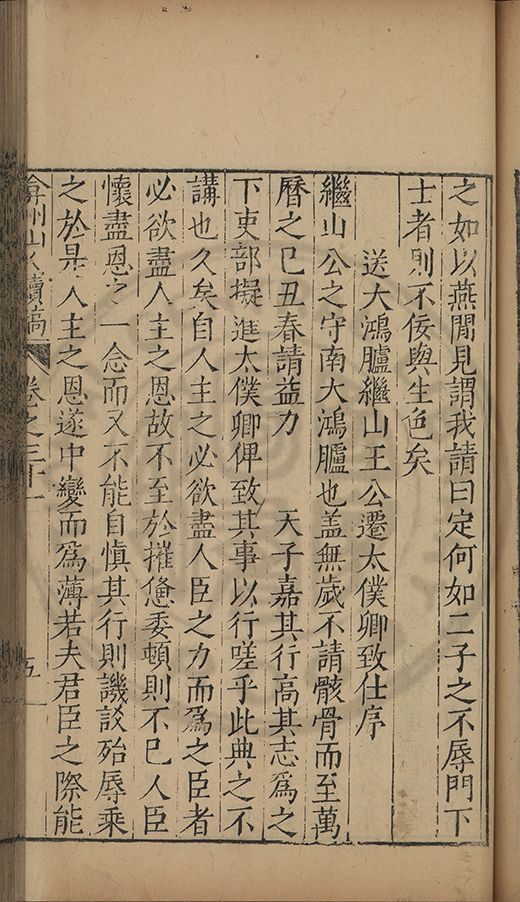 之如以燕閒見謂我請曰定何如二子之不辱門下
士者則不佞與生色矣
送大鴻臚繼山王公遷太僕卿致仕序
繼山公之守南大鴻臚也盖無歲不請骸骨而至萬
曆之巳丑春請益力 天子嘉其行高其志爲之
下吏部擬進太僕卿俾致其事以行嗟乎此典之不
講也久矣自人主之必欲盡人臣之力而爲之臣者
必欲盡人主之恩故不至於摧憊委頓則不巳人臣
懷盡恩之一念而又不能自愼其行則譏談殆辱乘
之於是人主之恩遂中變而爲薄若夫君臣之際能
弇州山人續稿 卷之三十一 五